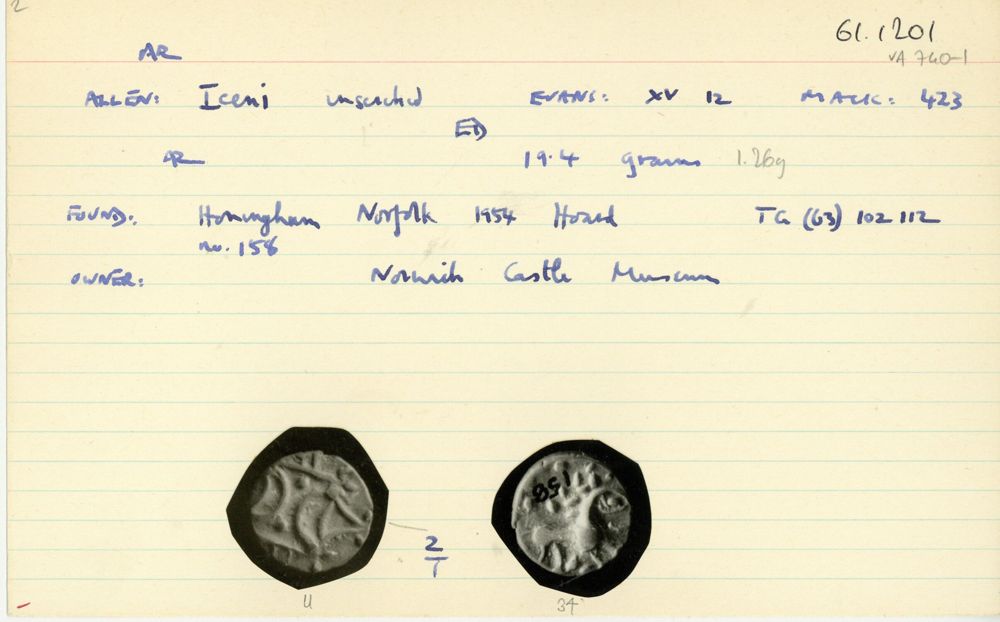 2
61.1201
AR
VA 740-1
ALLEN: Iceni inscribed EVANS: XV 12 MACK: 423
ED
AR 19.4 grains 1.26g
FOUND: Honingham Norfolk 1954 Hoard TG (63) 102 112
no. 158
OWNER: Norwich Castle Museum
158
2
1
U 34